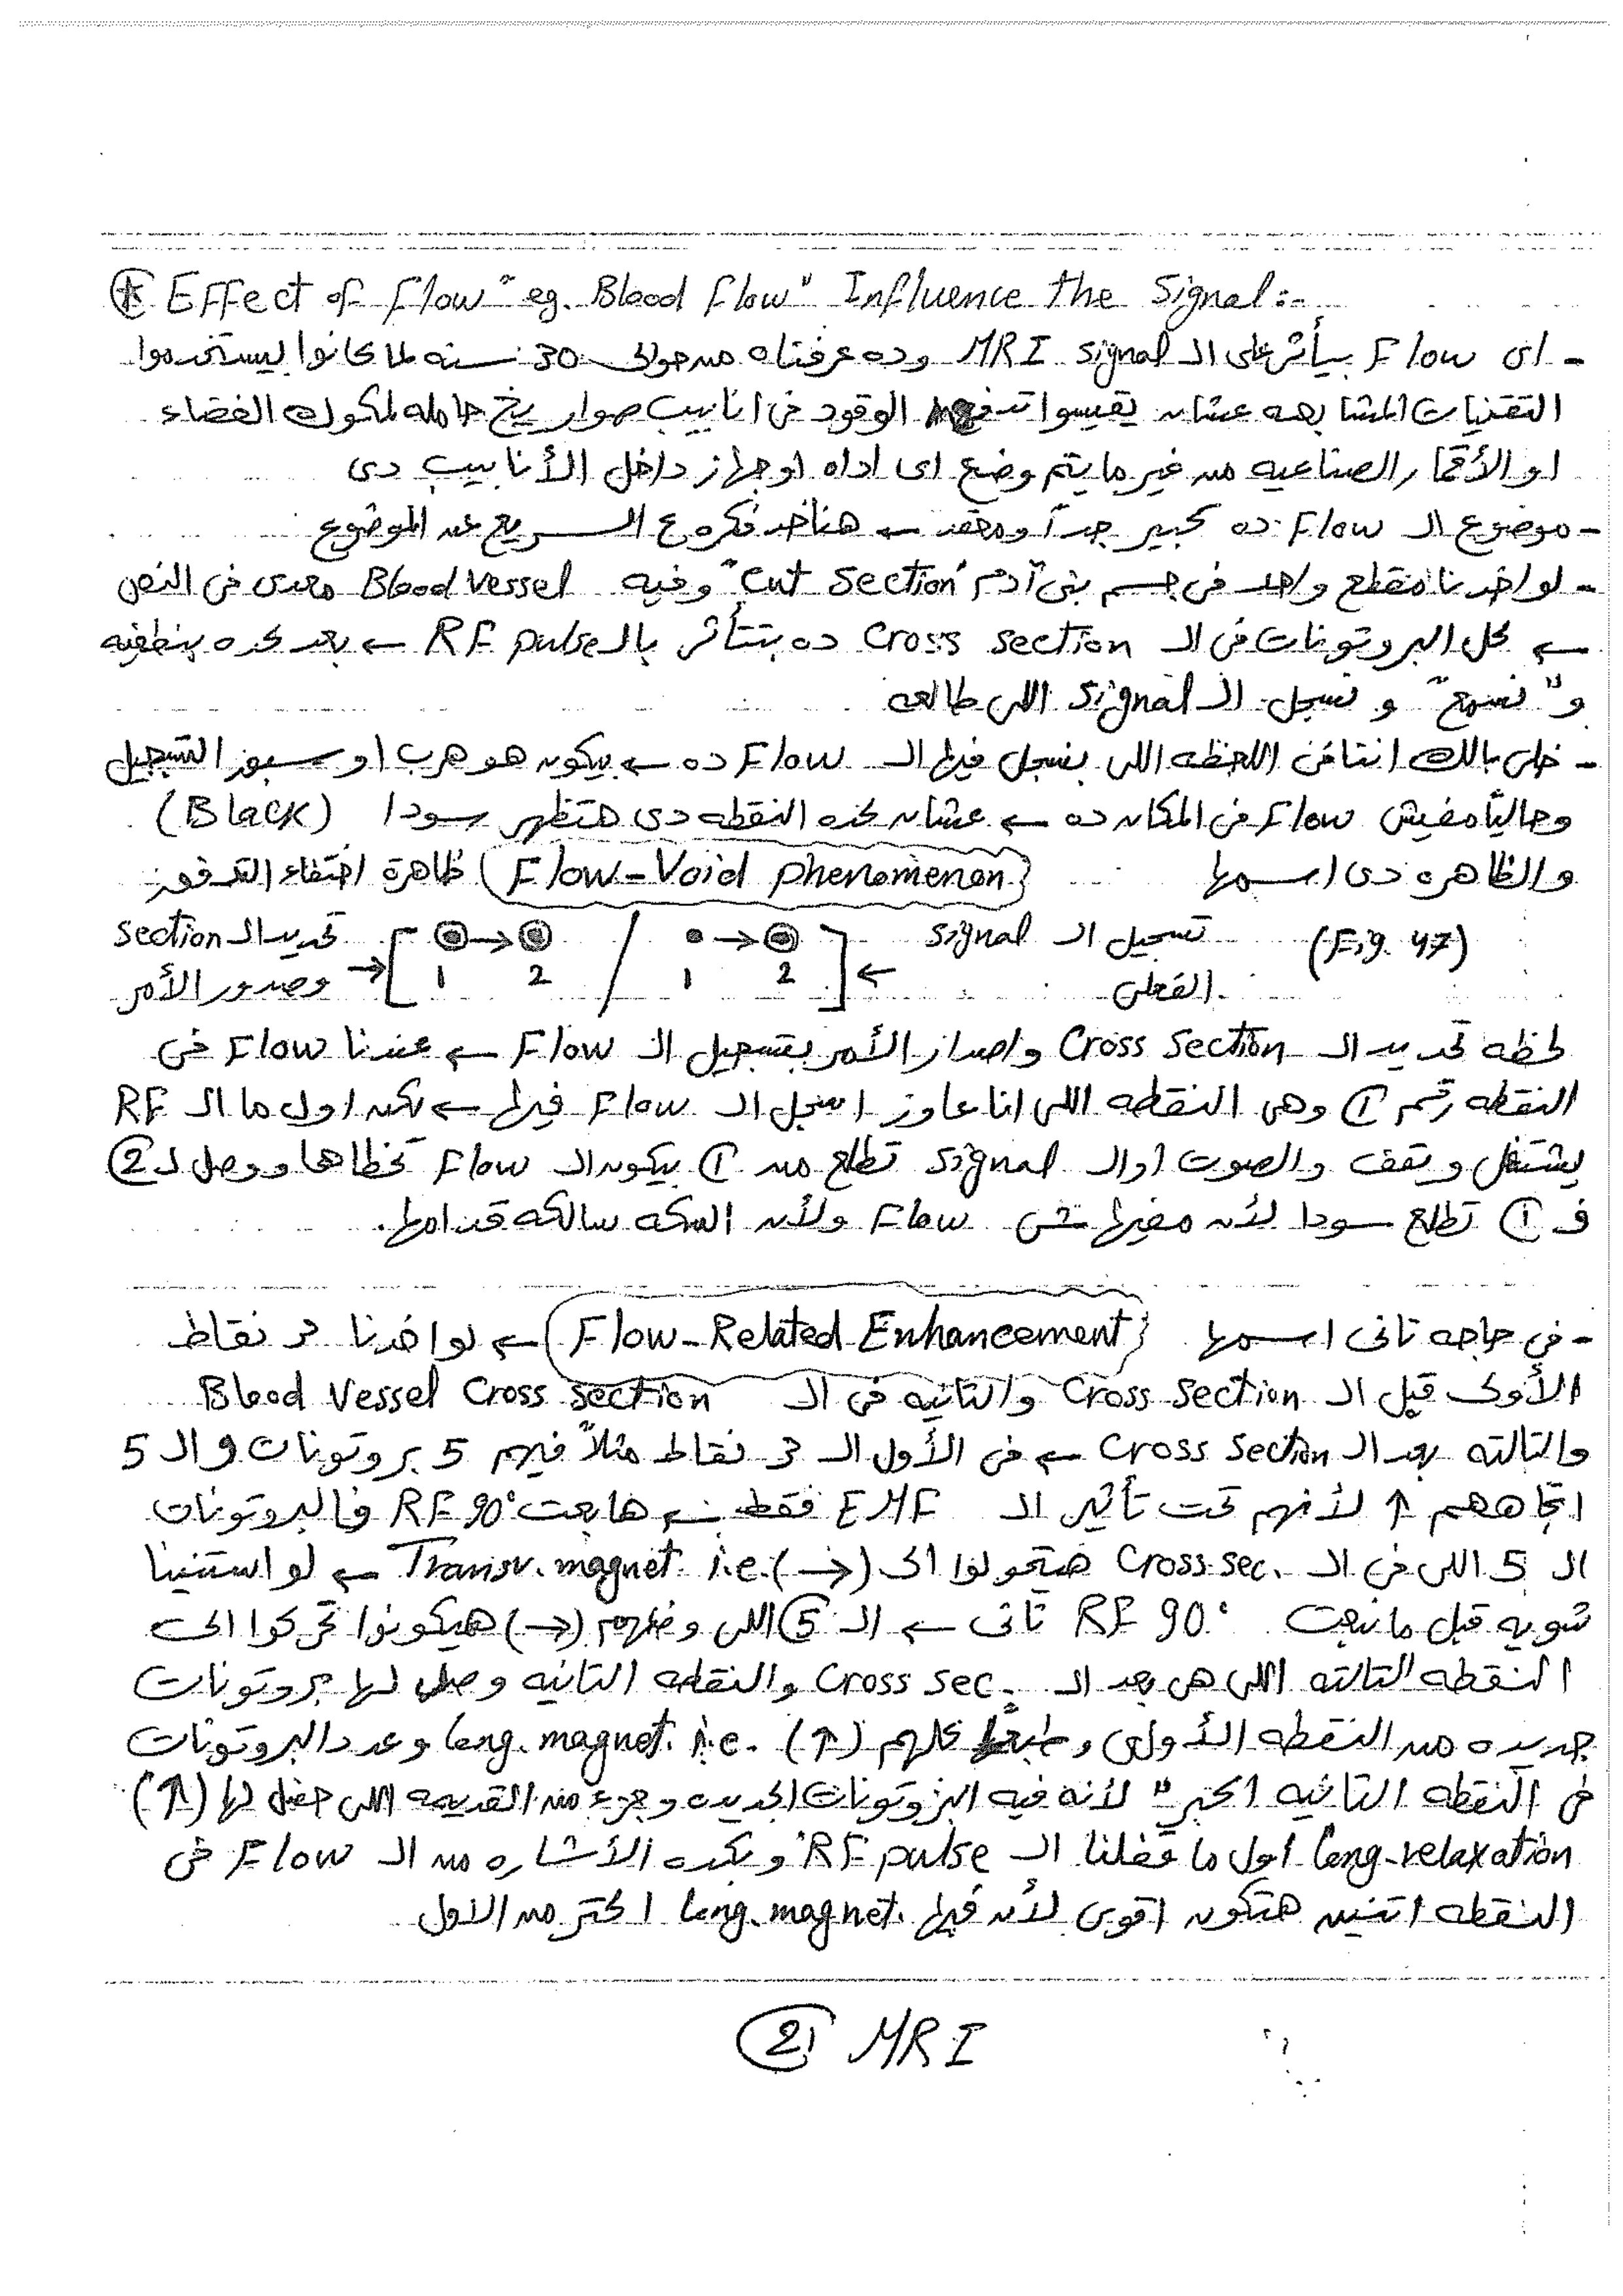 * Effect of Flow "eg. Blood Flow" Influence the Signal:-
- اى Flow بيأثر على الـ MRI signal وده عرفناه من حوالى 30 سنه لما كانوا بيستخدموا
التقنيات المشابهه عشان يقيسوا تدفق الوقود فى انابيب صواريخ حامله لمكوك الفضاء
او الأقمار الصناعيه من غير ما يتم وضع اى اداه او جهاز داخل الأنابيب دى
- موضوع الـ Flow ده كبير جداً ومعقد ← هناخد فكره ع السريع عن الموضوع
- لو اخدنا مقطع واحد فى جسم بنى آدم "Cut Section" وفيه Blood Vessel معدى فى النص
← كل البروتونات فى الـ Cross section ده بتتأثر بالـ RF pulse ← بعد كده بنطفيه
و "نسمع" و نسجل الـ signal اللى طالعه
- خلى بالك انتا فى اللحظه اللى بنسجل فيها الـ Flow ده ← بيكون هو هرب او سبور التسجيل
وحالياً مفيش Flow فى المكان ده ← عشان كده النقطه دى هتظهر سودا (Black)
والظاهره دى اسمها (Flow-Void phenomenon) ظاهرة اختفاء التدفق
(Fig. 47) تسجيل الـ signal الفعلى ← [ 1 → 2 / 1 → 2 ] ← تحديد الـ section وصدور الأمر
لحظه تحديد الـ Cross Section واصدار الأمر بتسجيل الـ Flow ← عندنا Flow فى
النقطه رقم ① وهى النقطه اللى انا عاوز اسجل الـ Flow فيها ← لكن اول ما الـ RF
يشتغل ويقف والصوت او الـ signal تطلع من ① بيكون الـ Flow تخطاها ووصل لـ ②
فـ ① تطلع سودا لأن مفيهاش Flow ولأن السكه سالكه قدامها.
- فى حاجه تانى اسمها (Flow-Related Enhancement) ← لو اخدنا 3 نقاط
الأولى قبل الـ Cross section والتانيه فى الـ Blood Vessel Cross section
والتالته بعد الـ Cross section ← فى الأول الـ 3 نقاط مثلاً فيهم 5 بروتونات والـ 5
اتجاههم ↑ لأنهم تحت تأثير الـ EMF فقط ← هابعت RF 90° فالبروتونات
الـ 5 اللى فى الـ Cross sec. هيتحولوا الى (→) Transv. magnet. i.e. ← لو استنينا
شويه قبل ما نبعت RF 90° تانى ← الـ ⑤ اللى وضعهم (→) هيكونوا تحركوا الى
النقطه التالته اللى هى بعد الـ Cross sec. والنقطه التانيه وصل لها بروتونات
جديده من النقطه الأولى وطبعاً كلهم (↑) Long. magnet. i.e. وعدد البروتونات
فى النقطه التانيه "اكبر" لأنه فيه البروتونات الجديده وجزء من القديمه اللى حصل لها (↑)
Long-relaxation اول ما قفلنا الـ RF pulse وبكده الأشاره من الـ Flow فى
النقطه اتنين هتكون اقوى لأن فيها Long. magnet. اكتر من الأول
② MRI